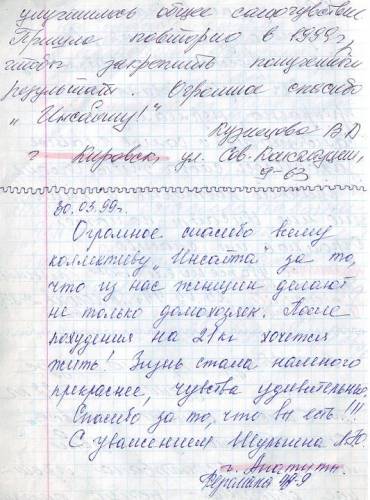 улучшилось общее самочувствие
Пришла повторно в 1999 г,
чтобы закрепить полученный
результат. Огромное спасибо
„Инсайту!"
Кузнецова В.А
г Кировск, ул. Сов. Конституции,
9-63
30.03.99г.
Огромное спасибо всему
коллективу „Инсайта" за то,
что из нас женщин делают
не только домохозяек. После
похудения на 21кг хочется
жить! Жизнь стала намного
прекраснее, чувства удивительные.
Спасибо за то, что вы есть!!!
С уважением
г. Апатиты
Ферсмана